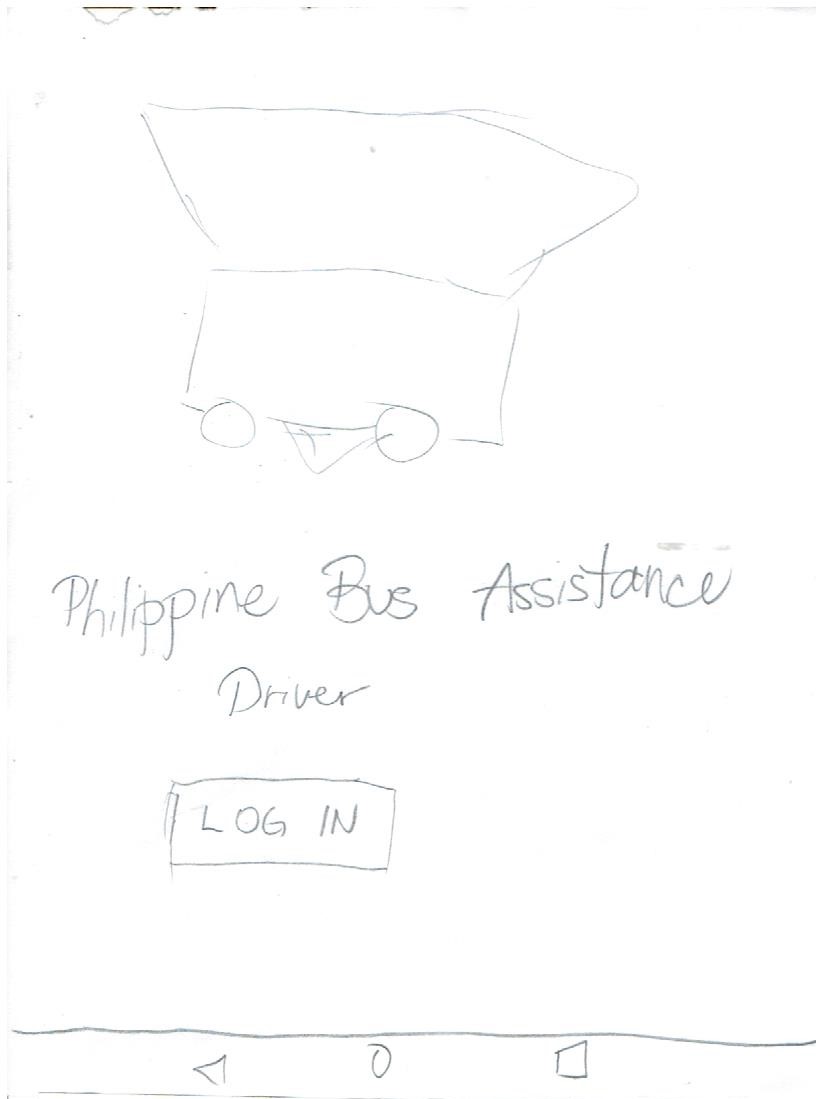 Philippine Bus Assistance
Driver
LOG IN